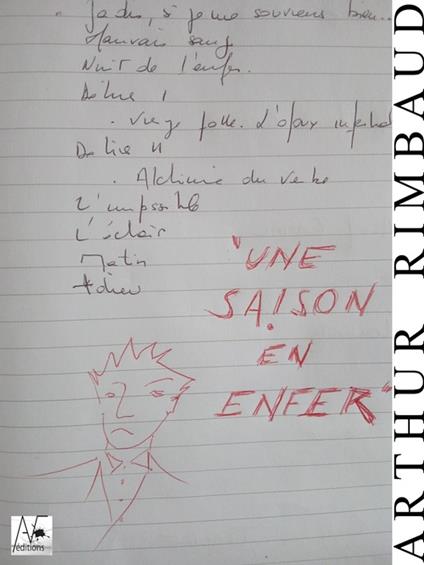 . Jadis, si je me souviens bien...
Mauvais sang
Nuit de l'enfer.
Délire I
. Vierge folle. L'époux infernal
Délire II
. Alchimie du verbe
L'impossible
L'éclair
Matin
Adieu
"UNE
SAISON
EN
ENFER"
ARTHUR RIMBAUD
AF
éditions